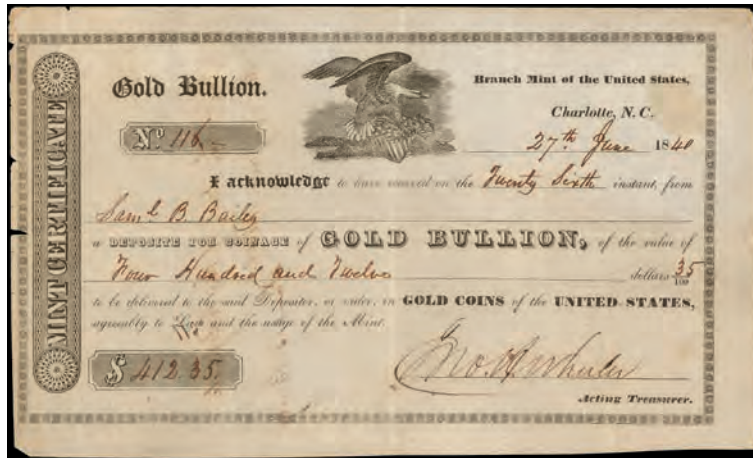 MINT CERTIFICATE
Gold Bullion.
Branch Mint of the United States,
Charlotte, N. C.
No 116
27th June 1840
I acknowledge to have received on the Twenty Sixth instant, from
Saml B. Bailey
a DEPOSITE FOR COINAGE of GOLD BULLION, of the value of
Four Hundred and Twelve dollars 35/100
to be delivered to the said Depositor, or order, in GOLD COINS of the UNITED STATES,
agreeably to Law and the usage of the Mint.
$ 412.35.
Jno. R. Wheeler
Acting Treasurer.